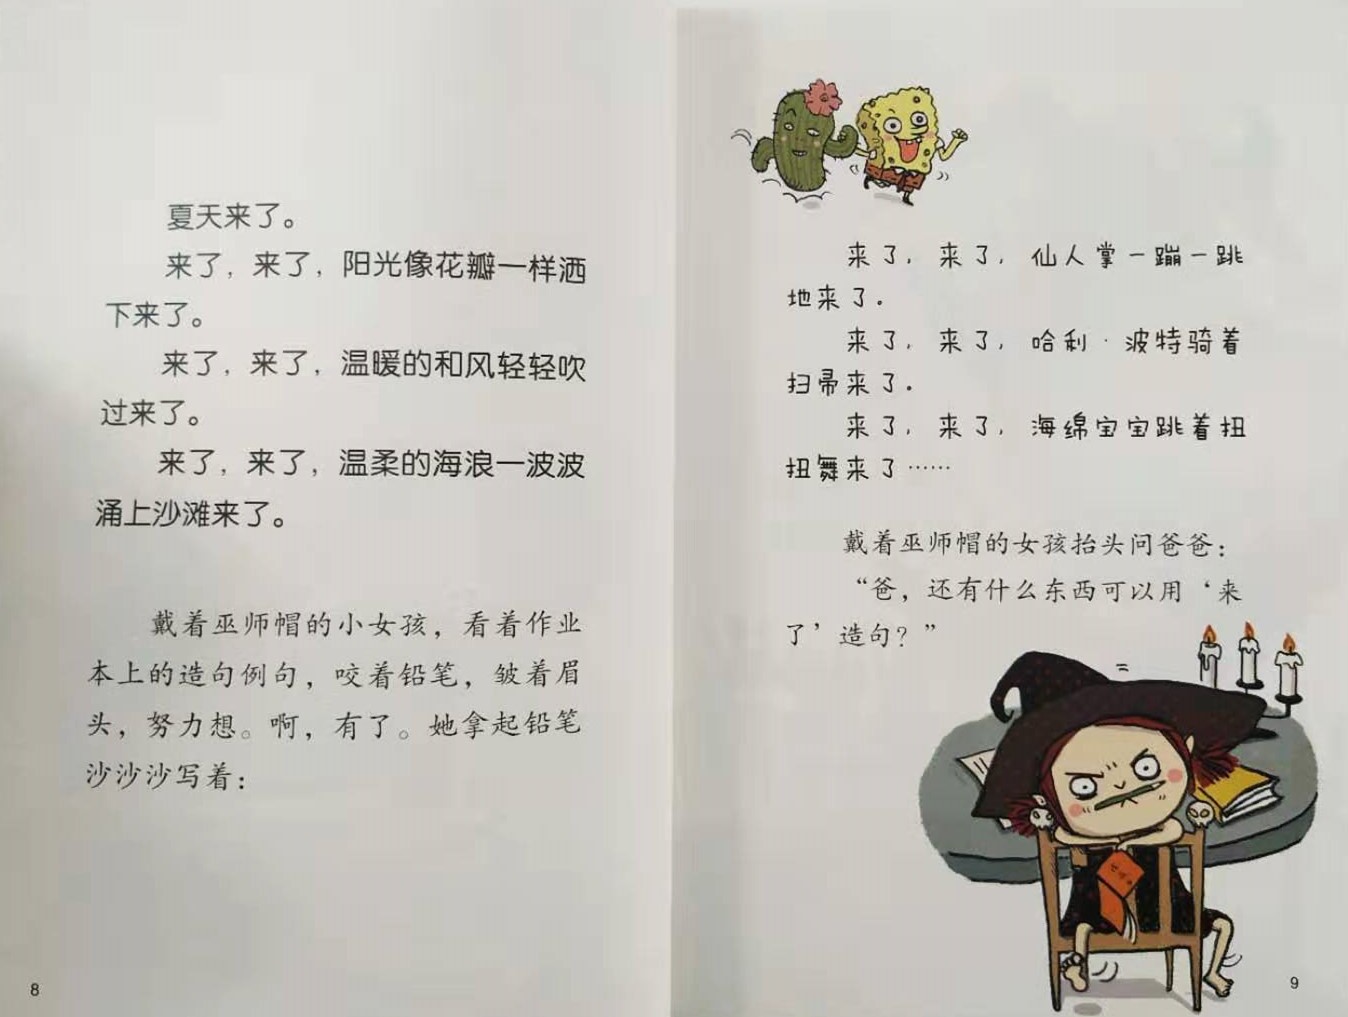 夏天来了。
来了，来了，阳光像花瓣一样洒
下来了。
来了，来了，温暖的和风轻轻吹
过来了。
来了，来了，温柔的海浪一波波
涌上沙滩来了。
戴着巫师帽的小女孩，看着作业
本上的造句例句，咬着铅笔，皱着眉
头，努力想。啊，有了。她拿起铅笔
沙沙沙写着：
8
来了，来了，仙人掌一蹦一跳
地来了。
来了，来了，哈利·波特骑着
扫帚来了。
来了，来了，海绵宝宝跳着扭
扭舞来了……
戴着巫师帽的女孩抬头问爸爸：
“爸，还有什么东西可以用‘来
了’造句？”
9